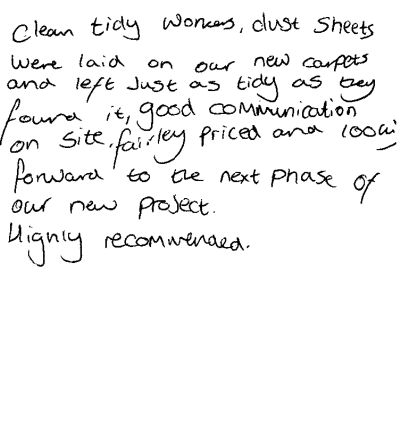 Clean tidy workers, dust sheets
were laid on our new carpets
and left Just as tidy as they
found it, good communication
on site, fairley priced and
forward to the next phase of
our new project.
Highly recommended.